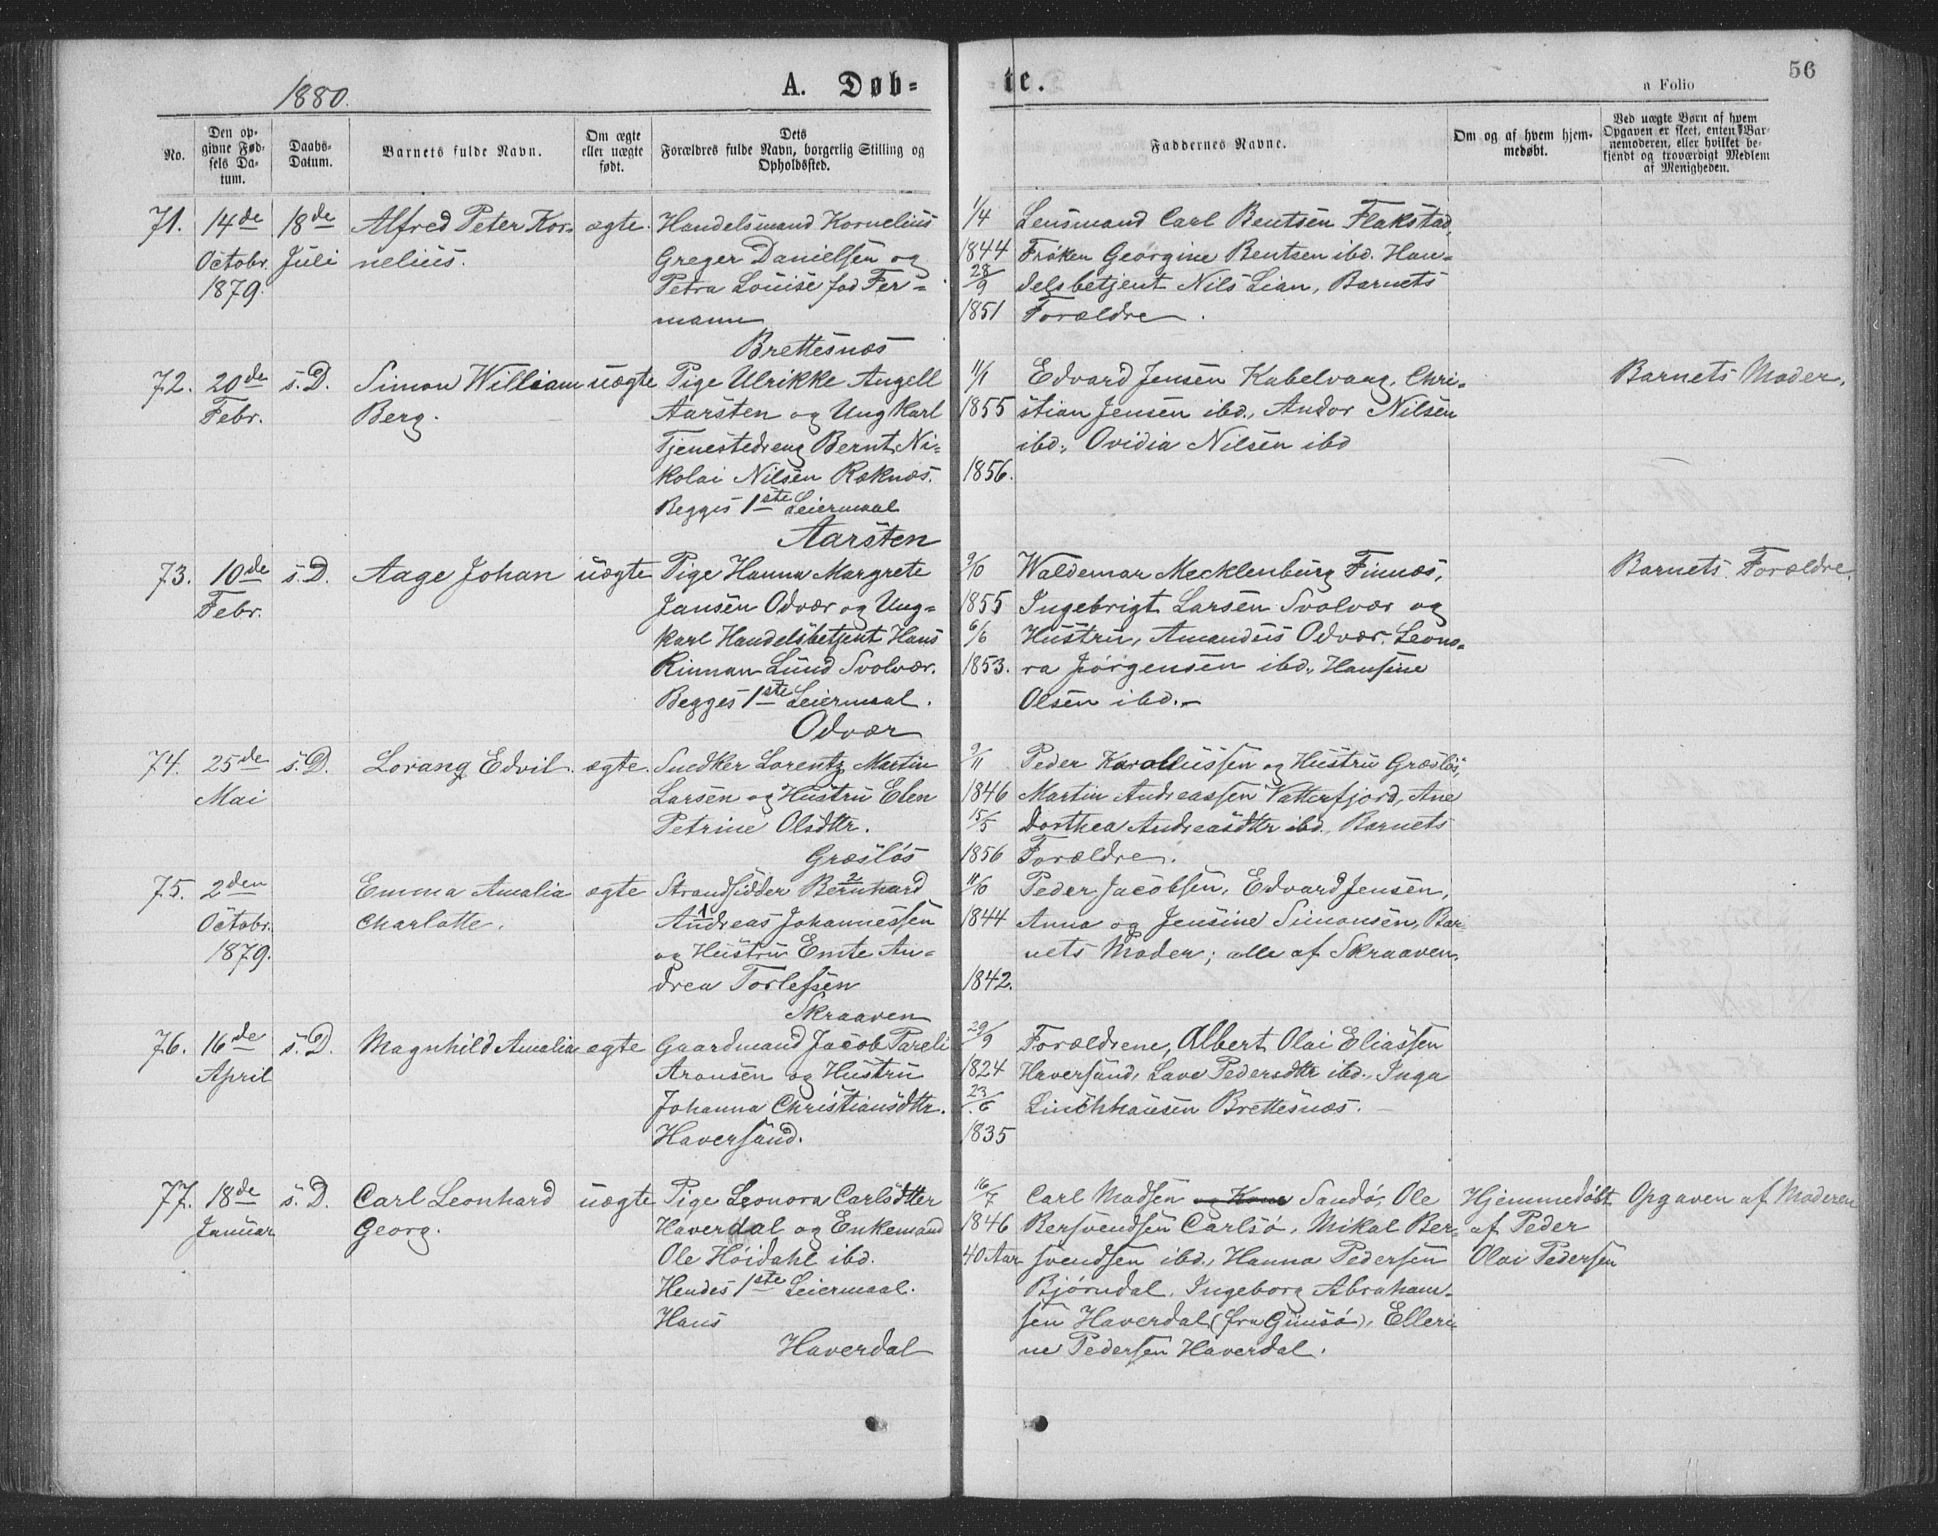 56
1880.
A. Døb=
te.
a Folio
No.
Den op-
givne Fød-
sels Da-
tum.
Daabs-
Datum.
Barnets fulde Navn.
Om ægte
eller uægte
født.
Dets
Forældres fulde Navn, borgerlig Stilling og
Opholdssted.
Faddernes Navne.
Om og af hvem hjem-
medøbt.
Ved uægte Børn af hvem
Opgaven er skeet, enten Bar-
nemoderen, eller hvilket be-
kjendt og troværdigt Medlem
af Menigheden.
71.
14de
Octobr.
1879.
18de
Juli
Alfred Peter Kor-
nelius.
ægte.
Handelsmand Kornelius
Greger Danielsen og
Petra Louise fød Fer-
mann
Brettesnæs
1/4
1844
28/9
1851
Lensmand Carl Bentsen Flakstad,
Frøken Georgine Bentsen ibd. Han-
delsbetjent Nils Lian, Barnets
Forældre.
72.
20de
Febr.
s. D.
Simon William
Berg.
uægte
Pige Ulrikke Angell
Aarsten og Ungkarl
Tjenestedreng Bernt Ni-
kolai Nilsen Røknæs.
Begges 1ste Leiermaal
Aarsten
11/1
1855
1856.
Edvard Jensen Kabelvaag, Chri-
stian Jensen ibd., Andor Nilsen
ibd., Ovidia Nilsen ibd
Barnets Moder.
73.
10de
Febr.
s. D.
Aage Johan
uægte
Pige Hanna Margrete
Jansen Odvær og Ung-
karl Handelsbetjent Hans
Rinman Lund Svolvær.
Begges 1ste Leiermaal.
Odvær
9/10
1855
6/6
1853.
Waldemar Mecklenburg Finnæs,
Ingebrigt Larsen Svolvær og
Hustru, Amandus Odvær. Leono-
ra Jørgensen ibd., Hansine
Olsen ibd.
Barnets Forældre.
74.
25de
Mai
s. D.
Lorang Edvil.
ægte.
Snedker Lorentz Martin
Larsen og Hustru Elen
Petrine Olsdttr.
Græsløs
9/11
1846
15/5
1856
Peder Karoliussen og Hustru Græsløs,
Martin Andreassen Vatterfjord, Ane
Dorthea Andreasdttr ibd., Barnets
Forældre.
75.
2den
Octobr.
1879.
Emma Amalia
Charlotte.
ægte
Strandsidder Bernhard
Andreas Johannessen
og Hustru Emte An-
drea Torlefsen
Skraaven
11/10
1844
1842.
Peder Jacobsen, Edvard Jensen,
Anna og Jensine Simonsen, Bar-
nets Moder; alle af Skraaven.
76.
16de
April
s. D.
Magnhild Amalia
ægte
Gaardmand Jacob Pareli
Aronsen og Hustru
Johanna Christiansdttr.
Haversand.
29/9
1824
23/6
1835
Forældrene, Albert Olai Eliassen
Haversand, Lave Pedersdttr ibd., Inga
Linchhausen Brettesnæs.
77.
18de
Januar
s. D.
Carl Leonhard
Georg.
uægte
Pige Leonora Carlsdtter
Haverdal og Enkemand
Ole Høidahl ibd.
Hendes 1ste Leiermaal.
Hans
Haverdal
16/7
1846
40 Aar
Carl Madsen og Kone Sandø, Ole
Bersvendsen Carlsø, Mikal Ber-
svendsen ibd., Hanna Pedersen
Bjørndal, Ingeborg Abraham-
sen Haverdal (fra Gimsø), Elleri-
ne Pedersen Haverdal.
Hjemmedøbt
af Peder
Olai Pedersen
Opgaven af Moderen